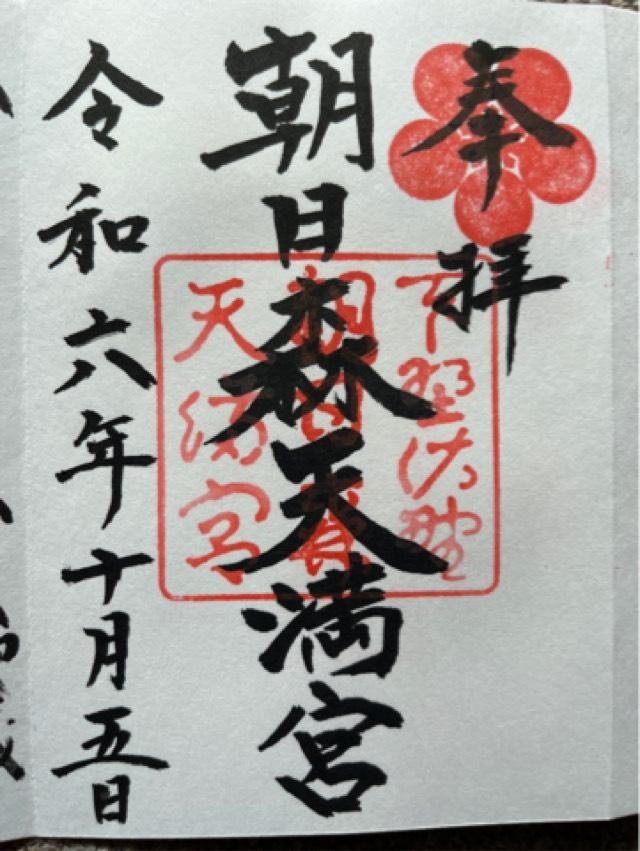 奉拝
朝日森天満宮
令和六年十月五日
下野佐野
朝日森
天満宮